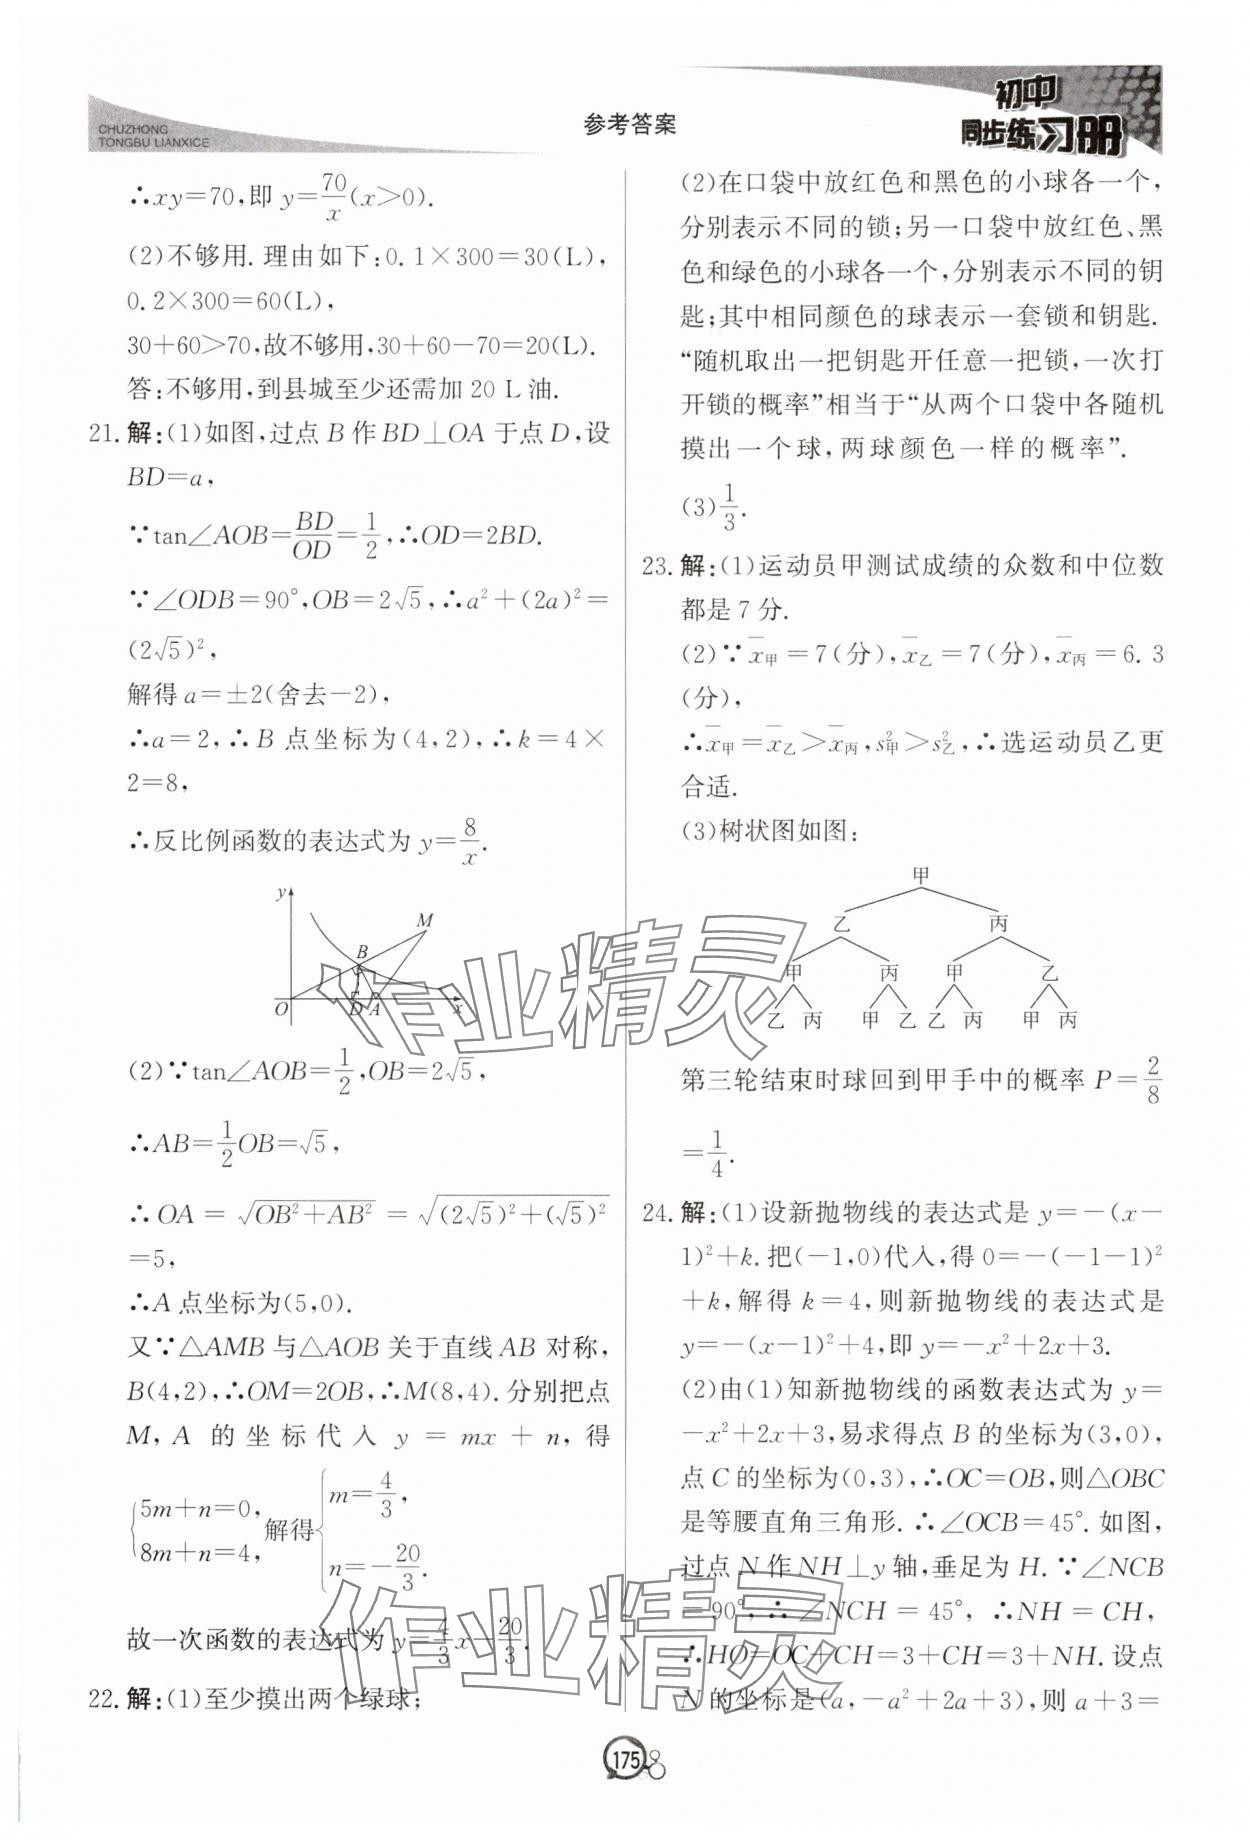 CHUZHONG
TONGBU LIANXICE
参考答案
初中
同步练习册
∴xy=70,即 y=70/x(x>0).
(2)不够用. 理由如下:0.1×300=30(L),
0.2×300=60(L),
30+60>70,故不够用,30+60-70=20(L).
答:不够用,到县城至少还需加 20 L 油.
21. 解:(1)如图,过点 B 作 BD⊥OA 于点 D,设
BD=a,
∵tan∠AOB=BD/OD=1/2,∴OD=2BD.
∵∠ODB=90°,OB=2√5,∴a²+(2a)²=
(2√5)²,
解得 a=±2(舍去-2),
∴a=2,∴B 点坐标为(4,2),∴k=4×
2=8,
∴反比例函数的表达式为 y=8/x.
y
M
B
O
D
A
x
(2)∵tan∠AOB=1/2,OB=2√5,
∴AB=1/2OB=√5,
∴OA=√(OB²+AB²)=√((2√5)²+(√5)²)
=5,
∴A 点坐标为(5,0).
又∵△AMB 与△AOB 关于直线 AB 对称,
B(4,2),∴OM=2OB,∴M(8,4). 分别把点
M,A 的坐标代入 y=mx+n,得
{5m+n=0, 8m+n=4, 解得{m=4/3, n=-20/3.
故一次函数的表达式为 y=4/3x-20/3.
22. 解:(1)至少摸出两个绿球;
(2)在口袋中放红色和黑色的小球各一个,
分别表示不同的锁;另一口袋中放红色、黑
色和绿色的小球各一个,分别表示不同的钥
匙;其中相同颜色的球表示一套锁和钥匙.
“随机取出一把钥匙开任意一把锁,一次打
开锁的概率”相当于“从两个口袋中各随机
摸出一个球,两球颜色一样的概率”.
(3)1/3.
23. 解:(1)运动员甲测试成绩的众数和中位数
都是 7 分.
(2)∵x̄甲=7(分),x̄乙=7(分),x̄丙=6.3
(分),
∴x̄甲=x̄乙>x̄丙,s²甲>s²乙,∴选运动员乙更
合适.
(3)树状图如图:
甲
乙 丙
甲 丙 甲 乙
乙 丙 甲 乙 乙 丙 甲 丙
第三轮结束时球回到甲手中的概率 P=2/8
=1/4.
24. 解:(1)设新抛物线的表达式是 y=-(x-
1)²+k. 把(-1,0)代入,得 0=-(-1-1)²
+k,解得 k=4,则新抛物线的表达式是
y=-(x-1)²+4,即 y=-x²+2x+3.
(2)由(1)知新抛物线的函数表达式为 y=
-x²+2x+3,易求得点 B 的坐标为(3,0),
点 C 的坐标为(0,3),∴OC=OB,则△OBC
是等腰直角三角形. ∴∠OCB=45°. 如图,
过点 N 作 NH⊥y 轴,垂足为 H. ∵∠NCB
=90°,∴∠NCH=45°,∴NH=CH,
∴HO=OC+CH=3+CH=3+NH. 设点
N 的坐标是(a,-a²+2a+3),则 a+3=
作业精灵
作业精灵
175